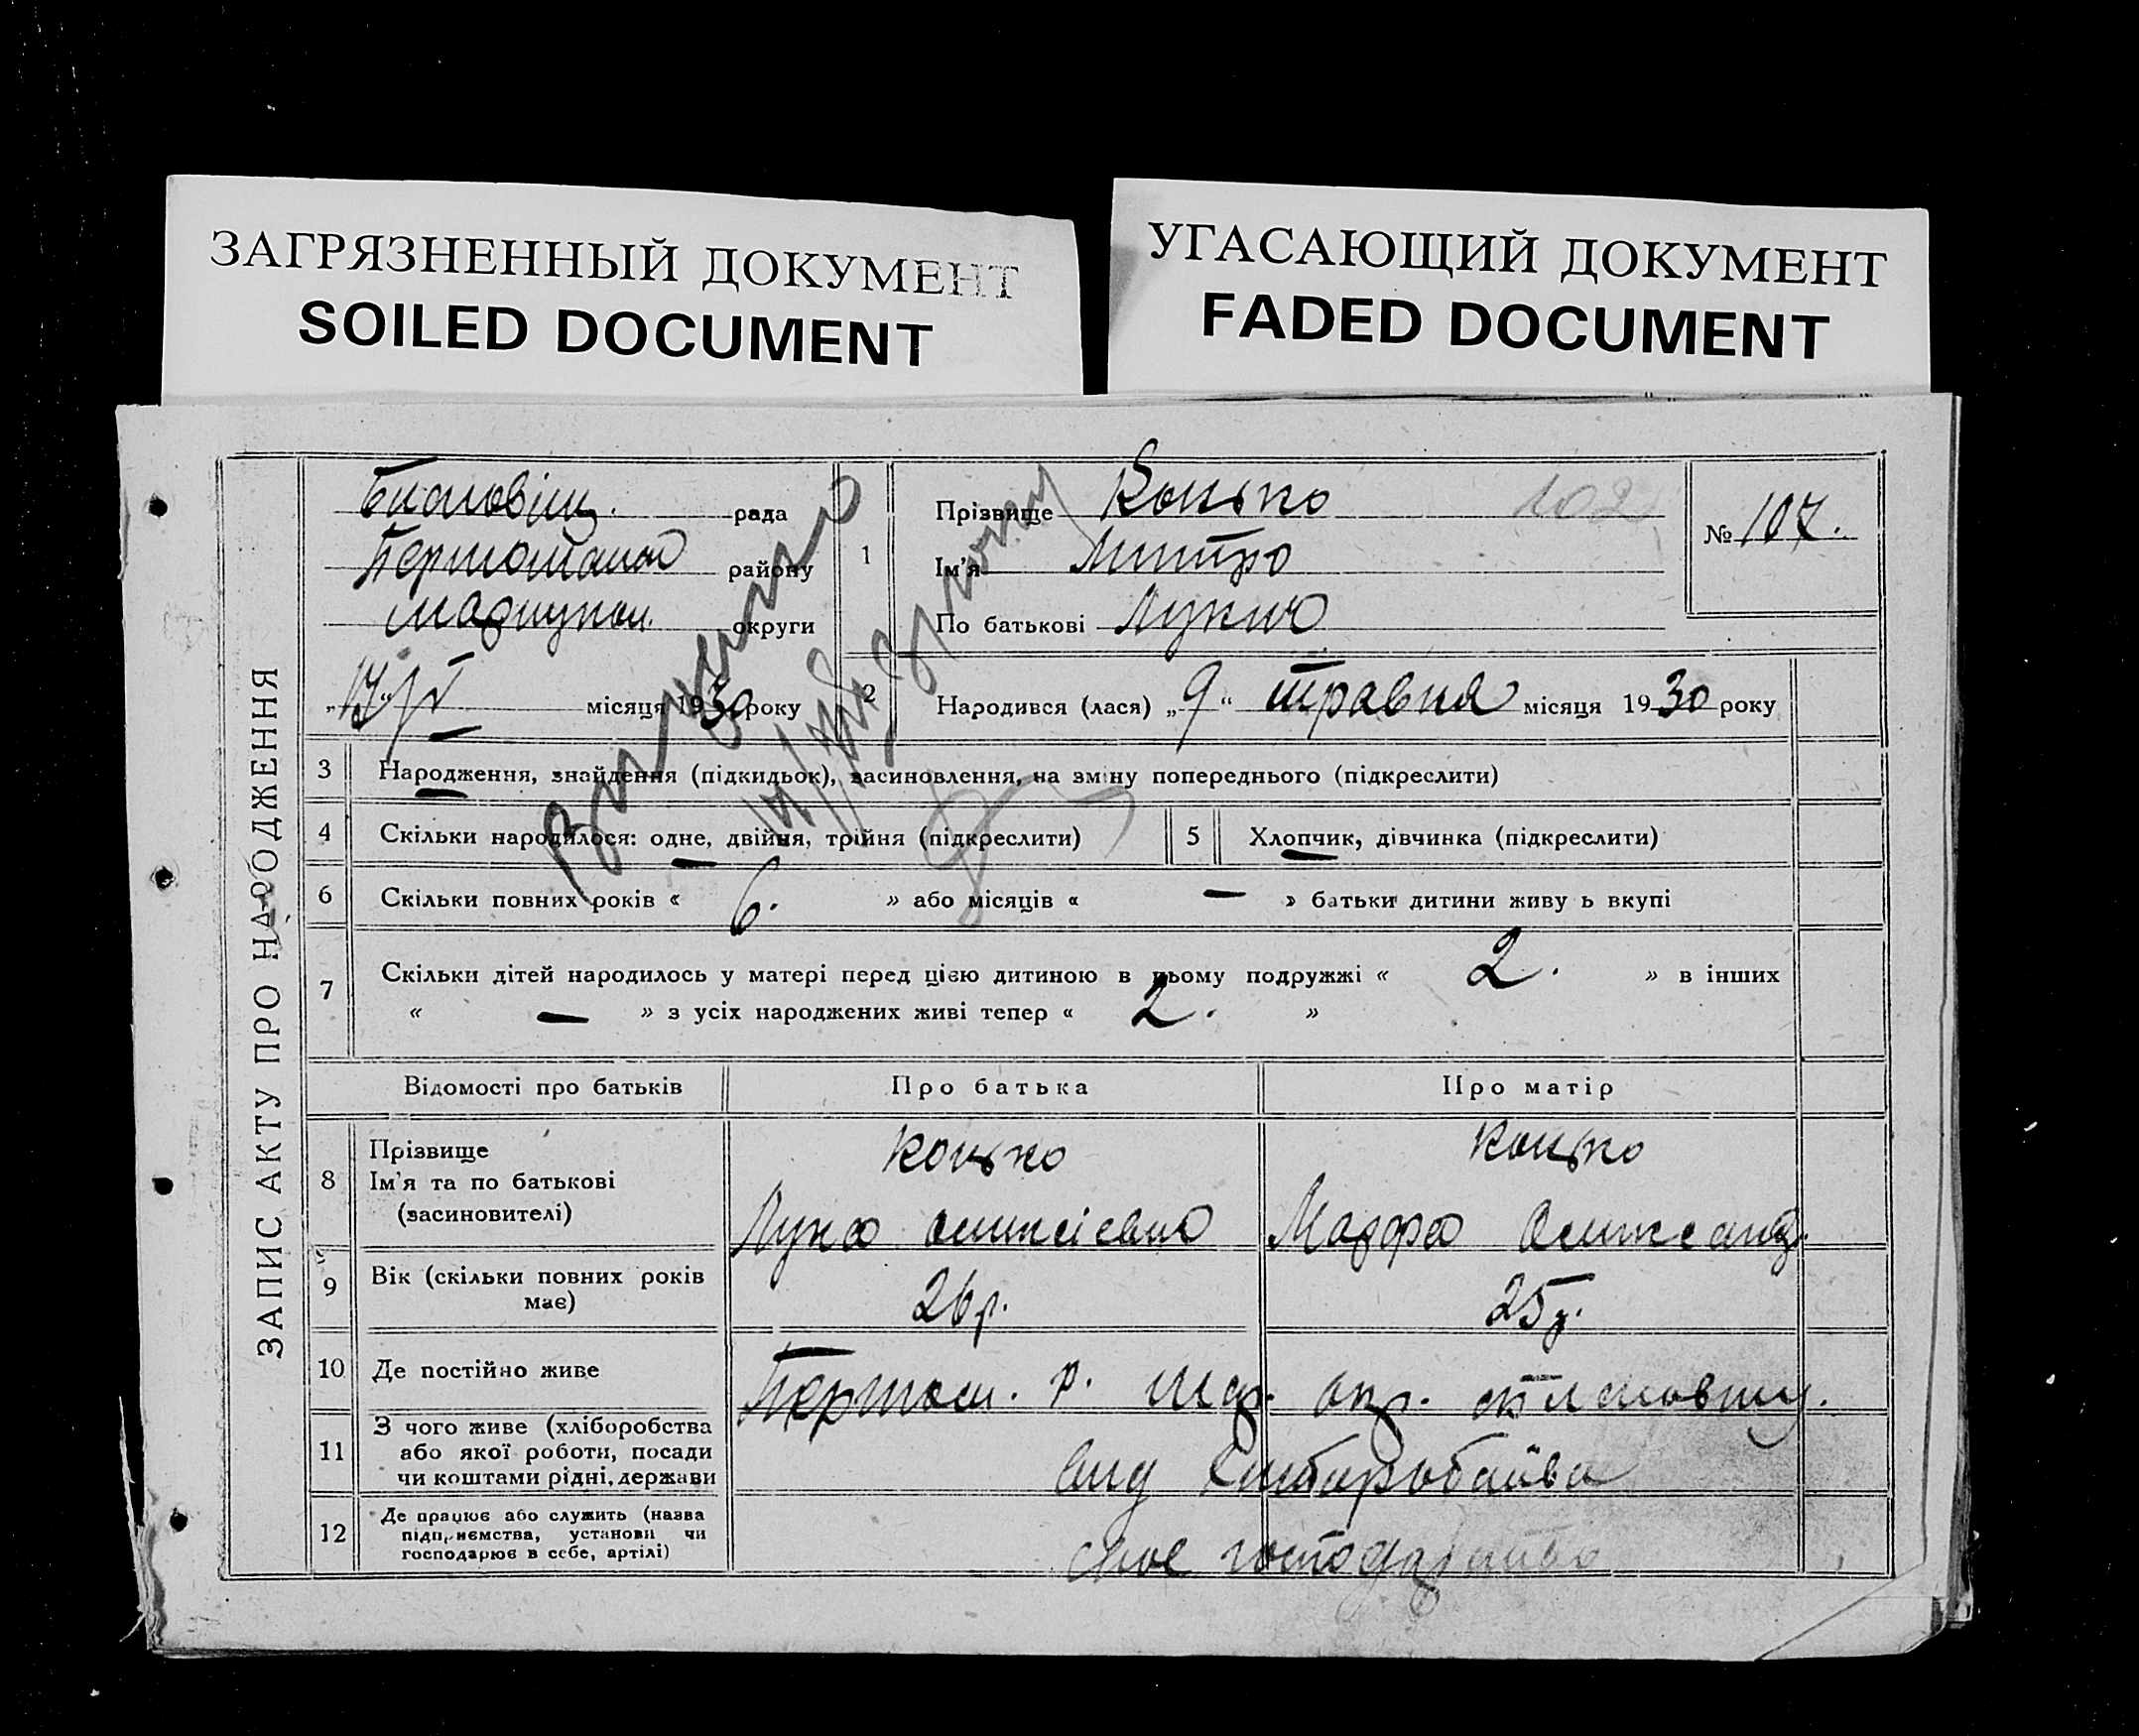 ЗАГРЯЗНЕННЫЙ ДОКУМЕНТ
SOILED DOCUMENT
УГАСАЮЩИЙ ДОКУМЕНТ
FADED DOCUMENT
ЗАПИС АКТУ ПРО НАРОДЖЕННЯ
рада
району
округи
місяця 1930 року
1
Прізвище Конько
102
Ім'я Митро
По батькові Лукич
№ 107.
2
Народився (лася) „9“ травня місяця 1930 року
3 Народження, знайдення (підкидьок), засиновлення, на зміну попереднього (підкреслити)
4 Скільки народилося: одне, двійня, трійня (підкреслити)
5 Хлопчик, дівчинка (підкреслити)
6 Скільки повних років « 6. » або місяців « — » батьки дитини живу ь вкупі
7 Скільки дітей народилось у матері перед цією дитиною в цьому подружжі « 2. » в інших
« — » з усіх народжених живі тепер « 2. »
Відомості про батьків Про батька Про матір
8 Прізвище
Ім'я та по батькові
(засиновителі)
Конько
Лука
Конько
Марфа
9 Вік (скільки повних років
має)
26 р.
25 р.
10 Де постійно живе
р. окр.
11 З чого живе (хліборобства
або якої роботи, посади
чи коштами рідні, держави
від хліборобства
12 Де працює або служить (назва
підприємства, установи чи
господарює в себе, артілі)
своє господарство